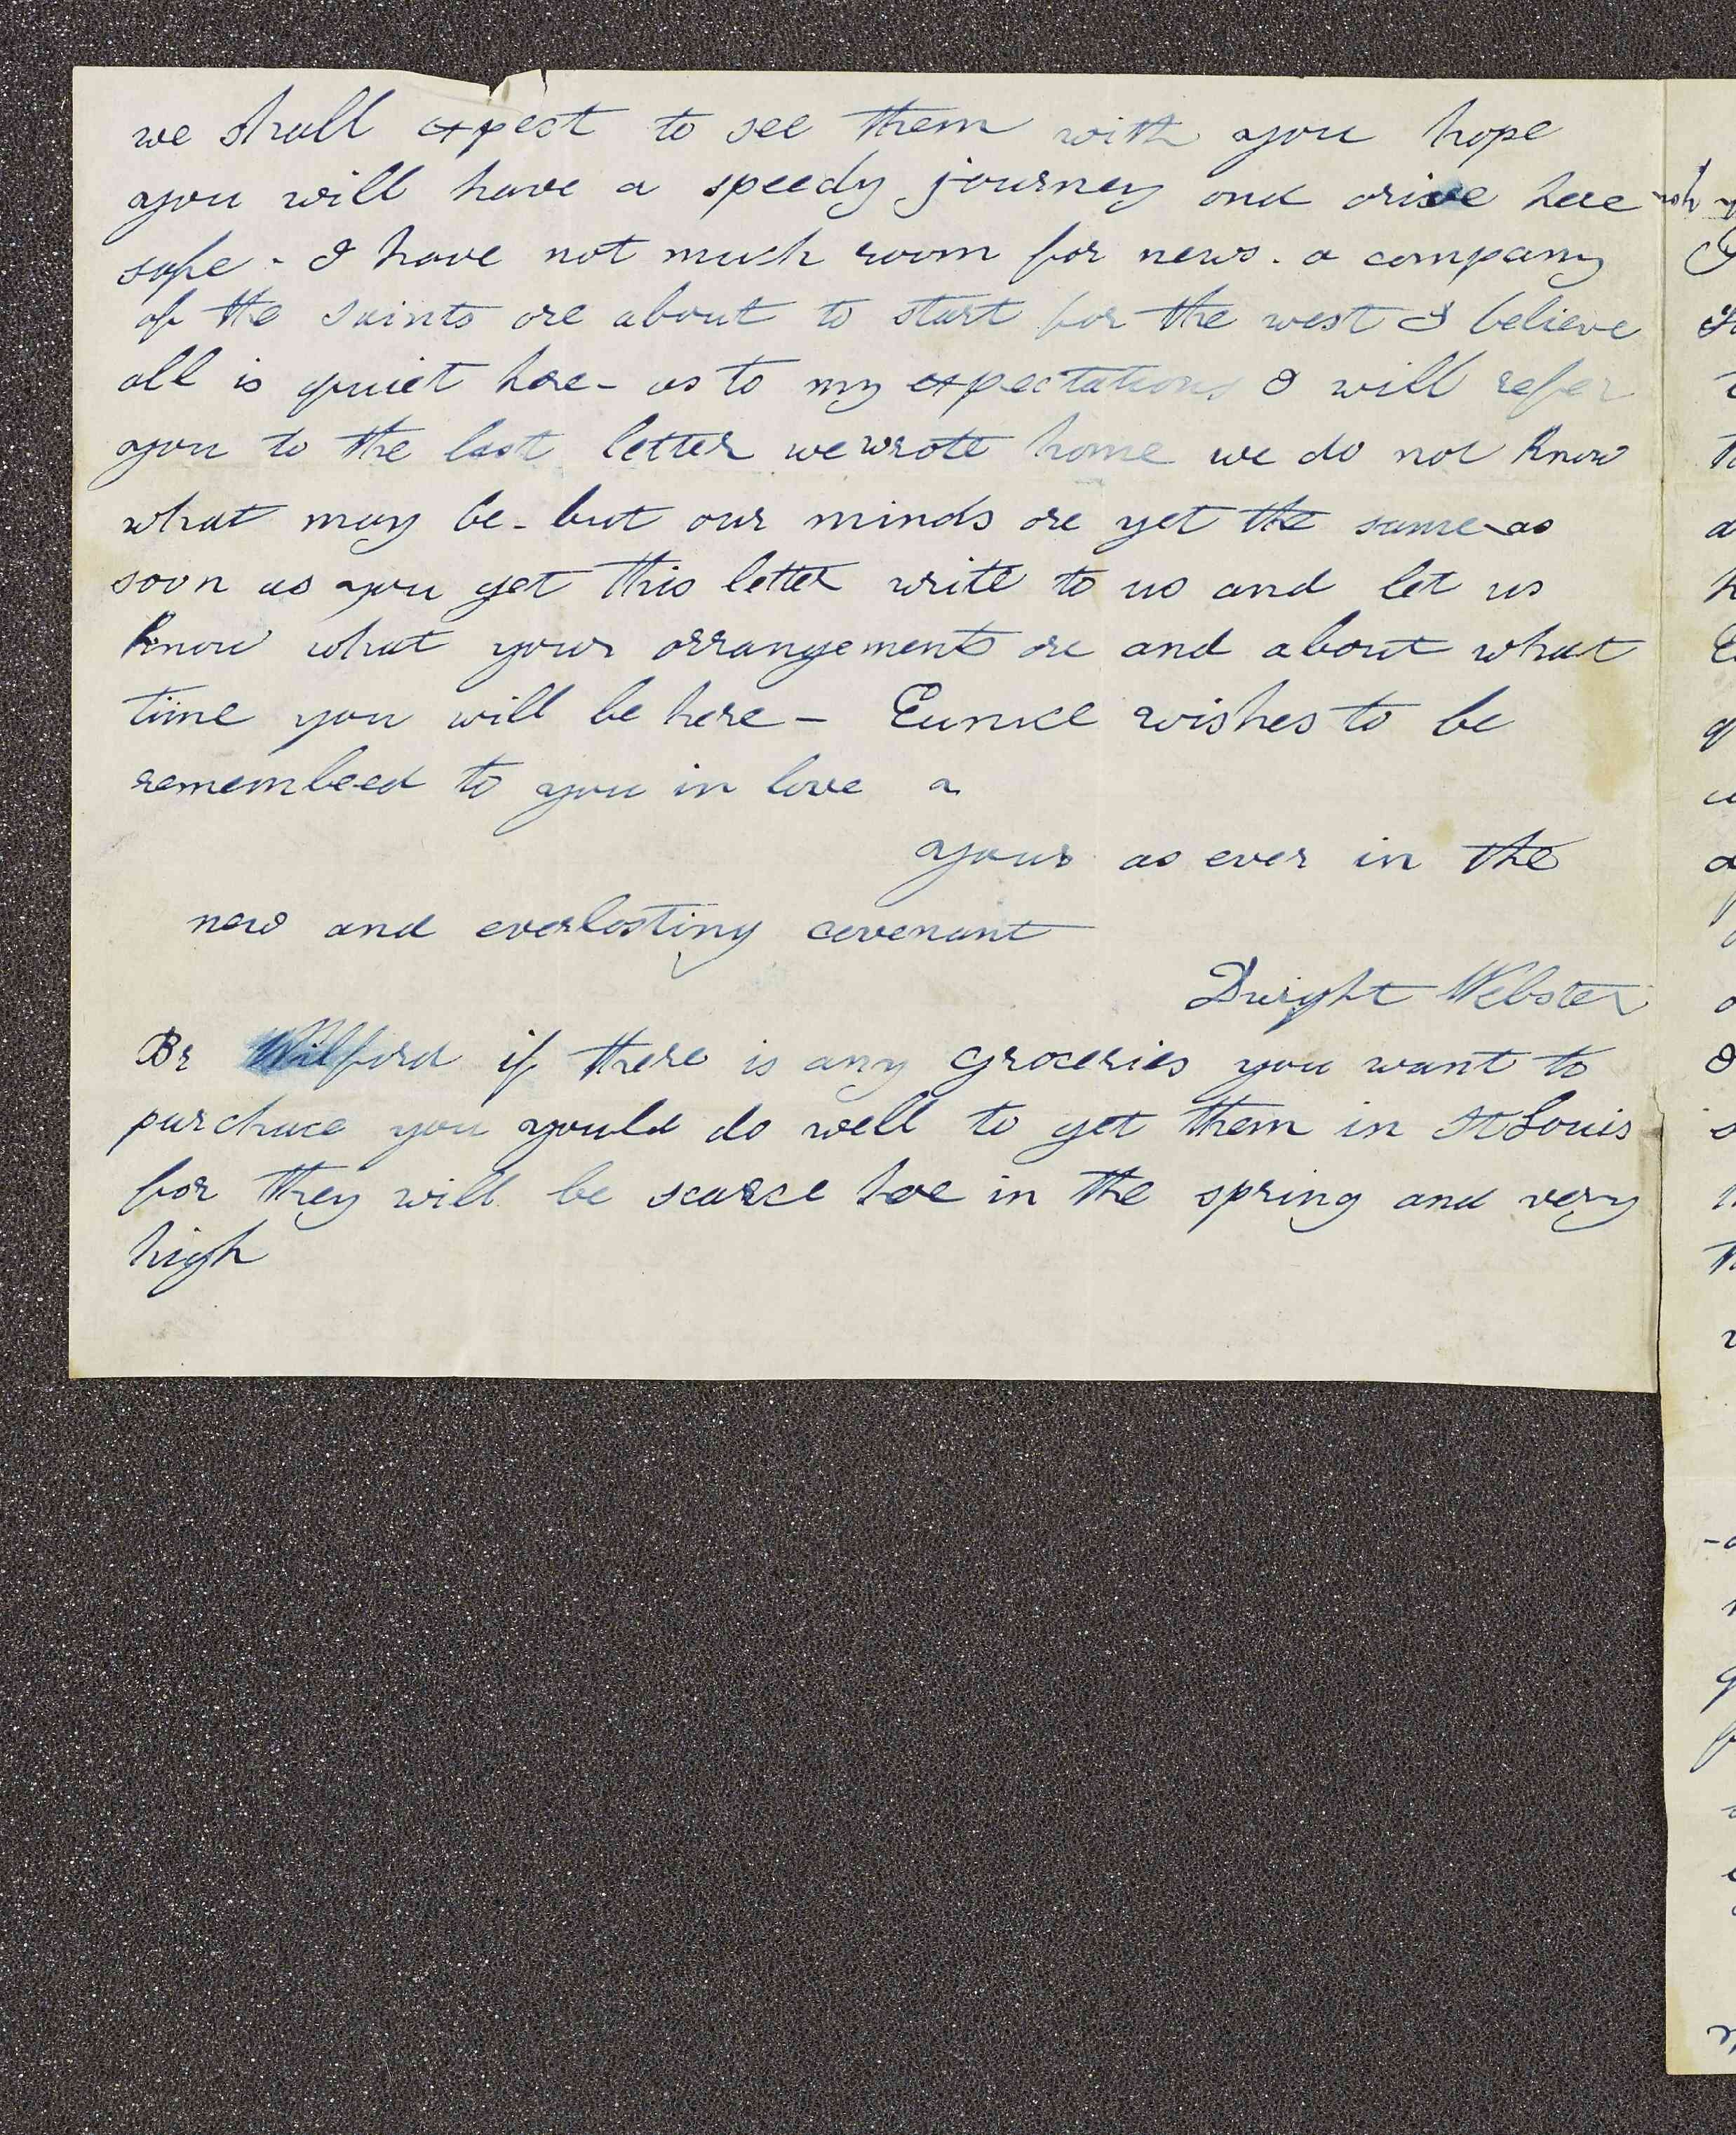 we shall expect to see them with you hope
you will have a speedy journey and arive here
safe - I have not much room for news. a company
of the saints are about to start for the west I believe
all is quiet here - as to my expectations I will refer
you to the last letter we wrote home we do not know
what may be - but our minds are yet the same as
soon as you get this letter write to us and let us
know what your arrangements are and about what
time you will be here - Eunice wishes to be
remembeed to you in love a
yours as ever in the
new and everlasting covenant
Dwight Webster
Br Wilford if there is any groceries you want to
purchace you yould do well to get them in St Louis
for they will be scarce here in the spring and very
high